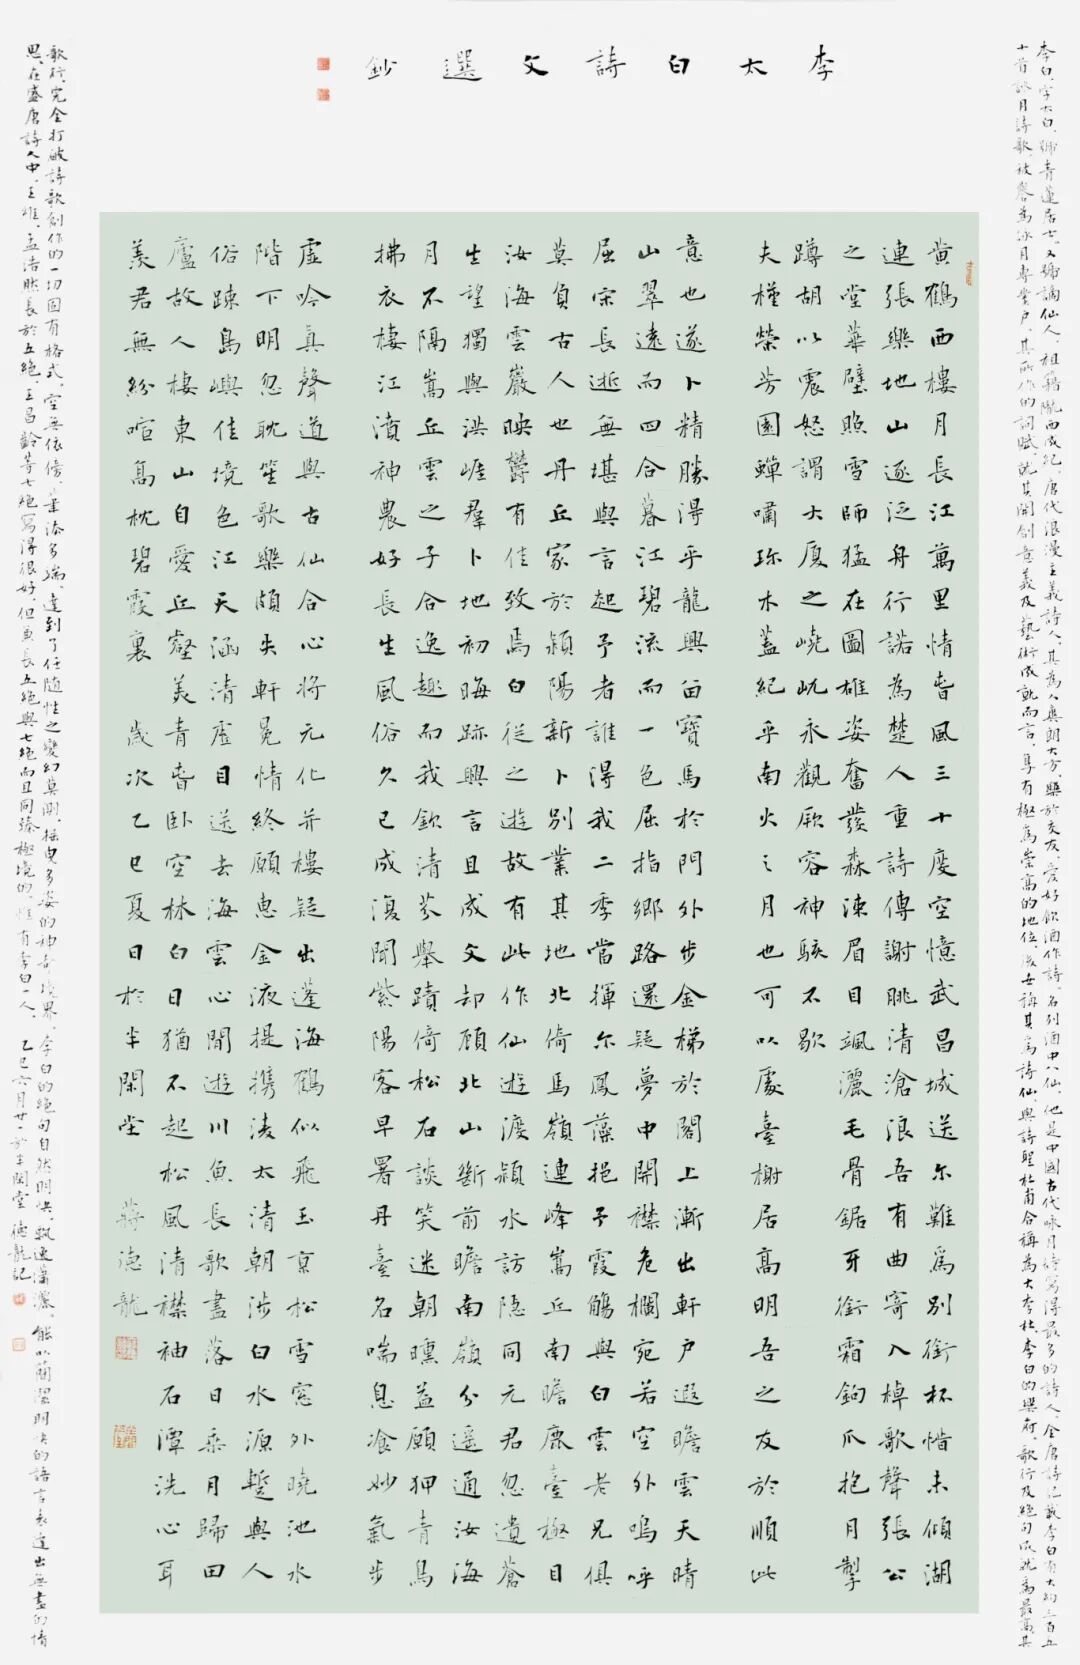 李太白詩文選鈔
李白，字太白，號青蓮居士，又號謫仙人，祖籍隴西成紀，唐代浪漫主義詩人，其為人爽朗大方，樂於交友，愛好飲酒作詩，名列酒中八仙。他是中國古代咏月詩寫得最多的詩人，全唐詩記載李白有大約三百五
十首詠月詩歌，被譽為咏月專業戶，其所作的詞賦，就其開創意義及藝術成就而言，享有極為崇高的地位，後世稱其為詩仙，與詩聖杜甫合稱為大李杜，李白的樂府，歌行及絕句成就為最高，其
黄鶴西樓月長江萬里情春風三十度空憶武昌城送尔難為別銜杯惜未傾湖
連張樂地山逐泛舟行諾為楚人重詩傳謝朓清滄浪吾有曲寄入棹歌聲張公
之堂華壁照雪師猛在圖雄姿奮發森涑眉目颯灑毛骨鋸牙銜霜鉤爪抱月掣
蹲胡以震怒謂大厦之嶢屼永觀厥容神駭不歇
夫槿榮芳園蟬嘯珎木蓋紀乎南火之月也可以處臺榭居高明吾之友於順此
意也遂卜精勝得乎龍興留寶馬於門外步金梯於閣上漸出軒户遐瞻雲天晴
山翠遠而四合暮江碧流而一色屈指鄉路還疑夢中開襟危欄宛若空外嗚呼
屈宋長逝無堪與言起予者誰得我二季當揮尔鳳藻挹予霞觴與白雲老兄俱
莫負古人也丹丘家於潁陽新卜別業其地北倚馬嶺連峰嵩丘南瞻鹿臺極目
汝海雲巖映鬱有佳致焉白從之遊故有此作仙遊渡潁水訪隱同元君忽遺蒼
生望獨與洪崖羣卜地初晦跡興言且成文却顧北山斷前瞻南嶺分遥通汝海
月不隔嵩丘雲之子合逸趣而我欽清芬舉蹟倚松石談笑迷朝曛益願狎青鳥
拂衣棲江濆神農好長生風俗久已成復聞紫陽客早署丹臺名喘息飡妙氣步
虛吟真聲道與古仙合心將元化并樓疑出蓬海鶴似飛玉京松雪窓外曉池水
階下明忽耽笙歌樂頗失軒冕情終願惠金液提携凌太清朝涉白水源暫與人
俗踈島嶼佳境色江天涵清虛目送去海雲心閒遊川魚長歌盡落日乘月歸田
廬故人棲東山自愛丘壑美青春卧空林白日猶不起松風清襟袖石潭洗心耳
羨君無紛喧高枕碧霞裏 歲次乙巳夏日於半閑堂 蔣德龍
歌行，完全打破詩歌創作的一切固有格式，空無依傍，筆法多端，達到了任隨性之變幻莫測，摇曳多姿的神奇境界，李白的絕句自然明快，飄逸瀟灑，能以簡潔明快的語言表達出無盡的情
思，在盛唐詩人中，王維，孟浩然長於五絕，王昌齡等七絕寫得很好，但兼長五絕與七絕而且同臻極境的，惟有李白一人。 乙巳六月廿一於半閑堂 德龍記